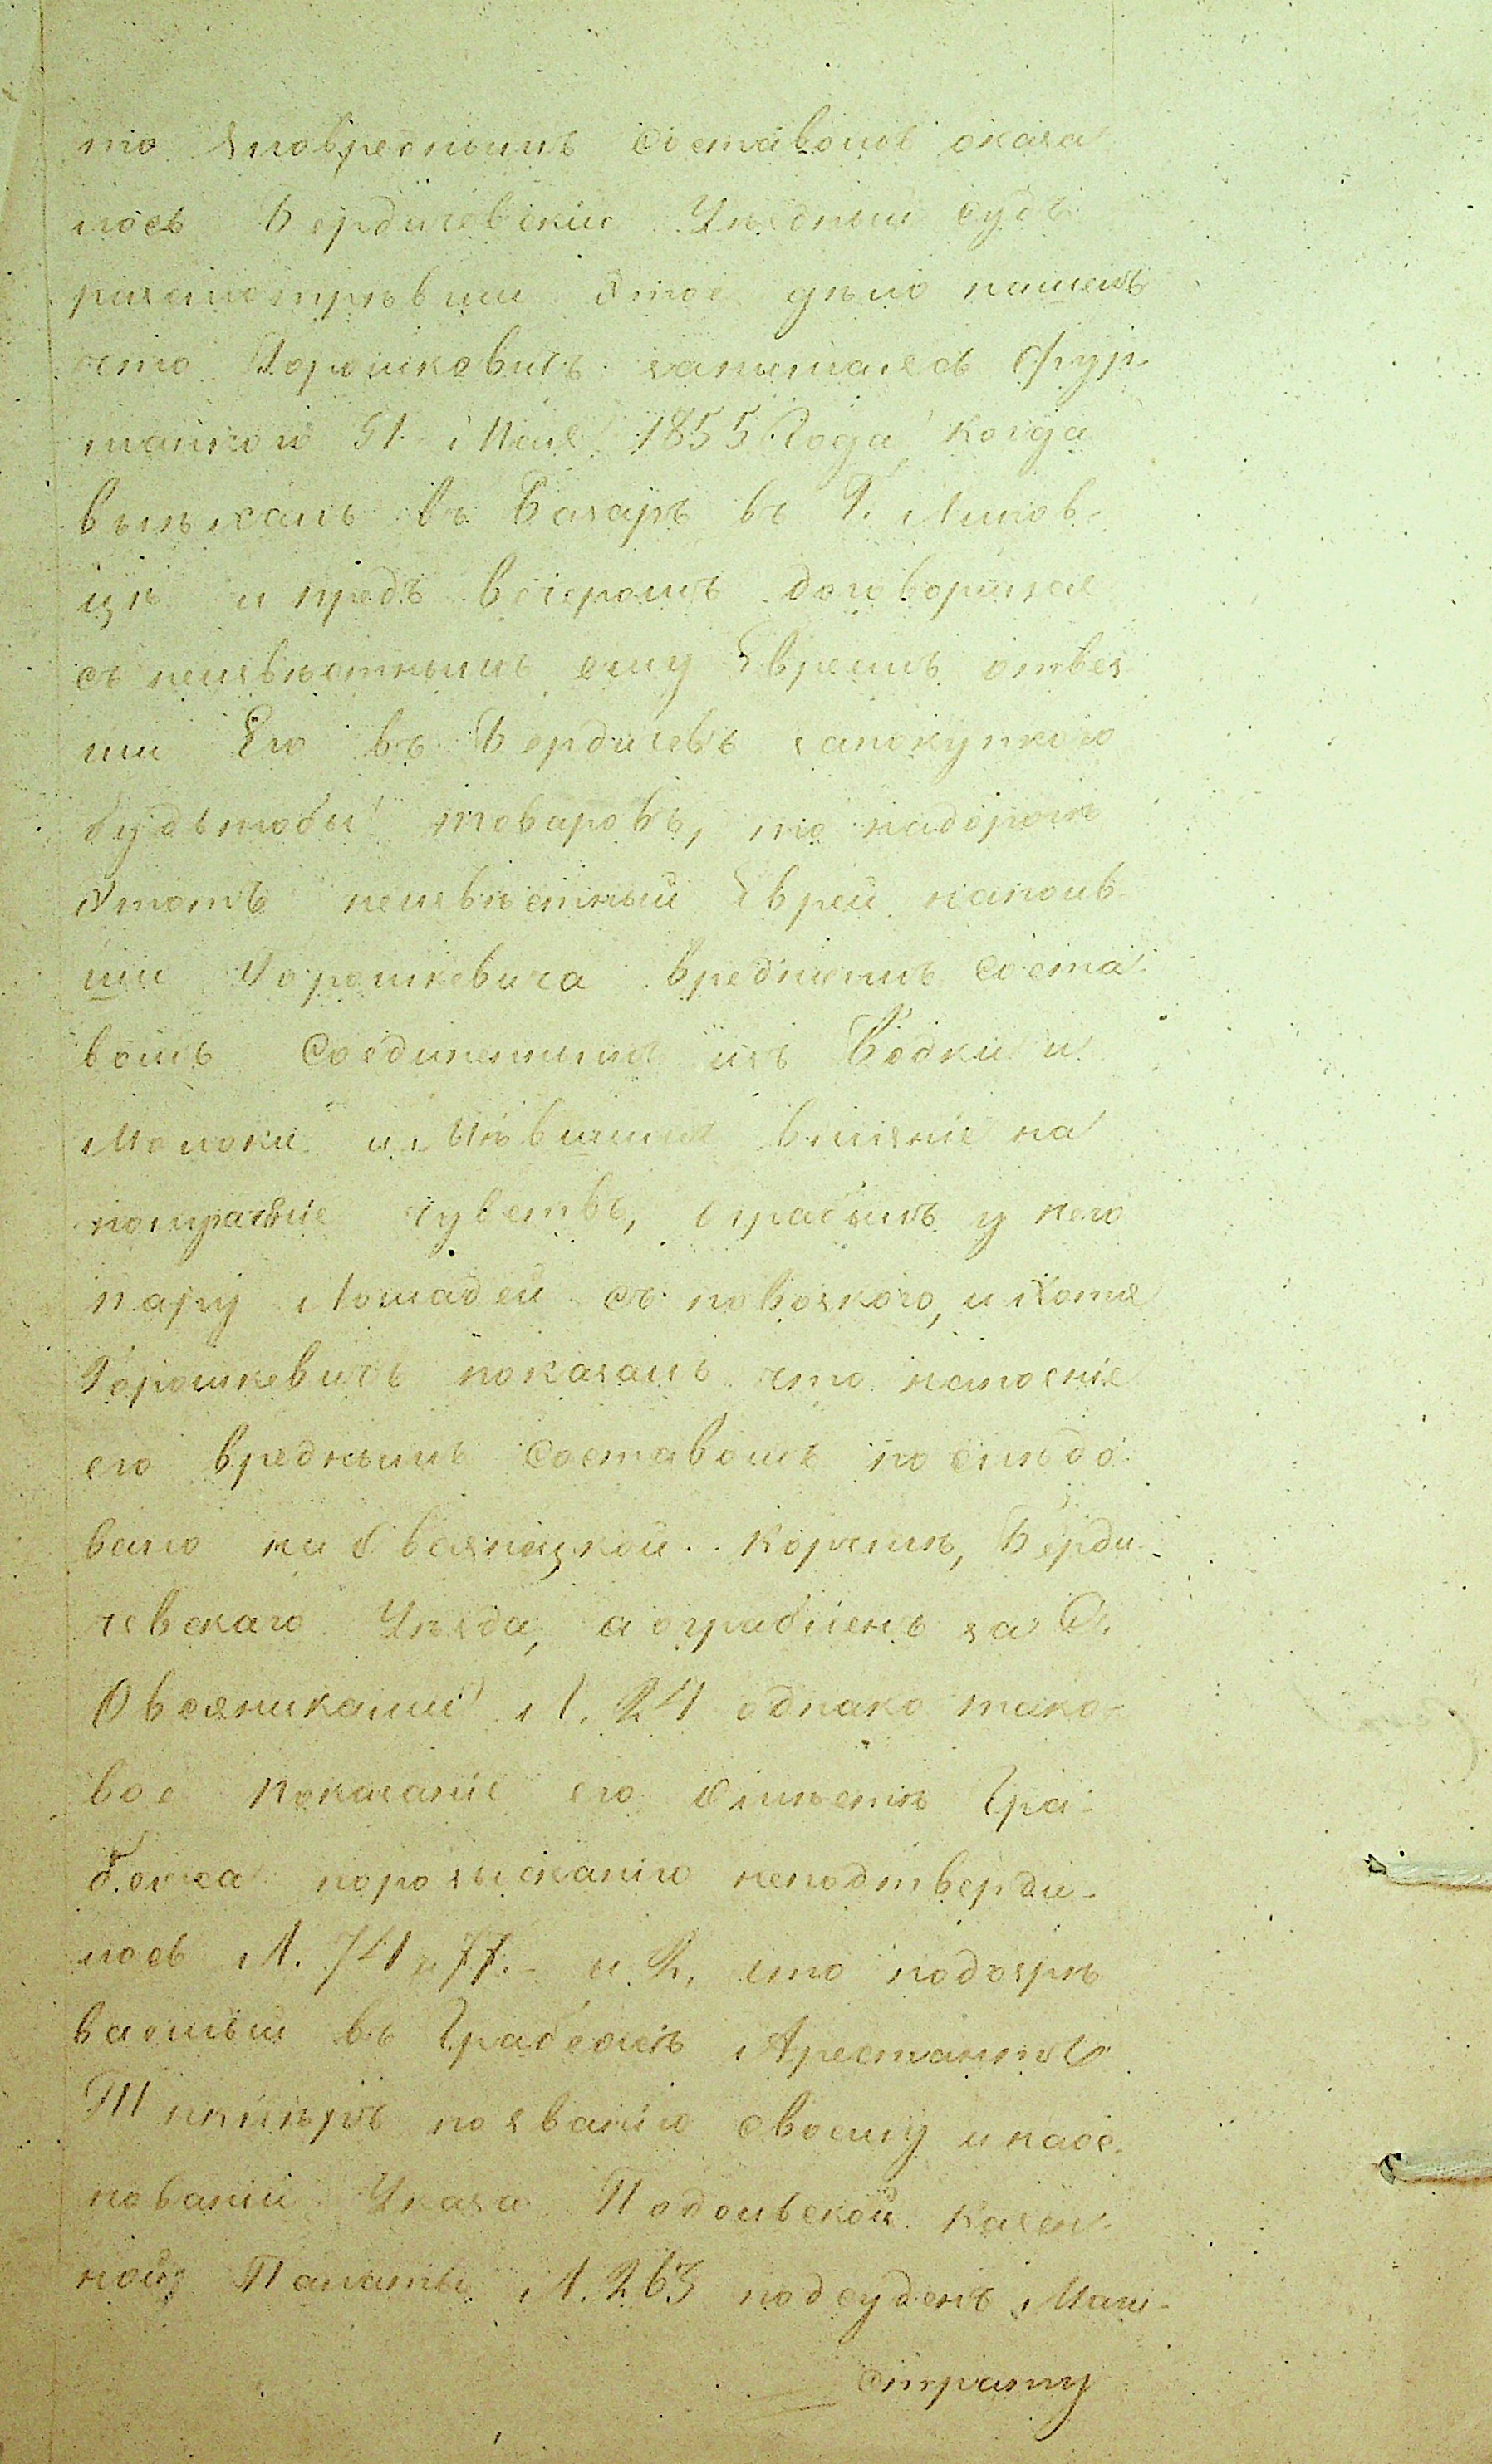 то зловреднымъ составомъ оказа
лось Бердичевскій Уѣздный судъ
разсмотрѣвши Этое дѣло нашелъ
что Горошкевичъ занимаясь фур-
манкою 51 Мая 1855 Года, когда
выѣхалъ въ Базаръ въ Г. Липов-
цѣ и предъ вечеромъ договорился
съ неизвѣстнымъ ему Евреемъ отвез
ти Его въ Бердичевъ запокупкою
будьтобы товаровъ, то надорогѣ
Этотъ неизвѣстный Еврей напоив-
ши Горошкевича вреднымъ соста
вомъ Соединеннымъ изъ Водки и
Молоки и имѣвшимъ вліяніе на
помраченіе чувствъ, ограбилъ у него
пару Лошадей съ повозкою, и хотя
Горошкевичъ показалъ что напоеніе
его вреднымъ составомъ послѣдо
вало на Овсяницкой Корчмѣ, Берди-
чевскаго Уѣзда, а ограбленъ за С.
Овсяниками Л. 24 однако тако-
вое показаніе его въ мѣстѣ Гра-
божа порозысканію неподтверди-
лось Л. 74 и 77. и 2, что подозрѣ
ваемый въ Грабежѣ Арестантъ
Шпиперъ по званію своему и наос-
нованіи Указа Подольской Казен-
ной Палаты Л. 263 подсуденъ Маги-
страту